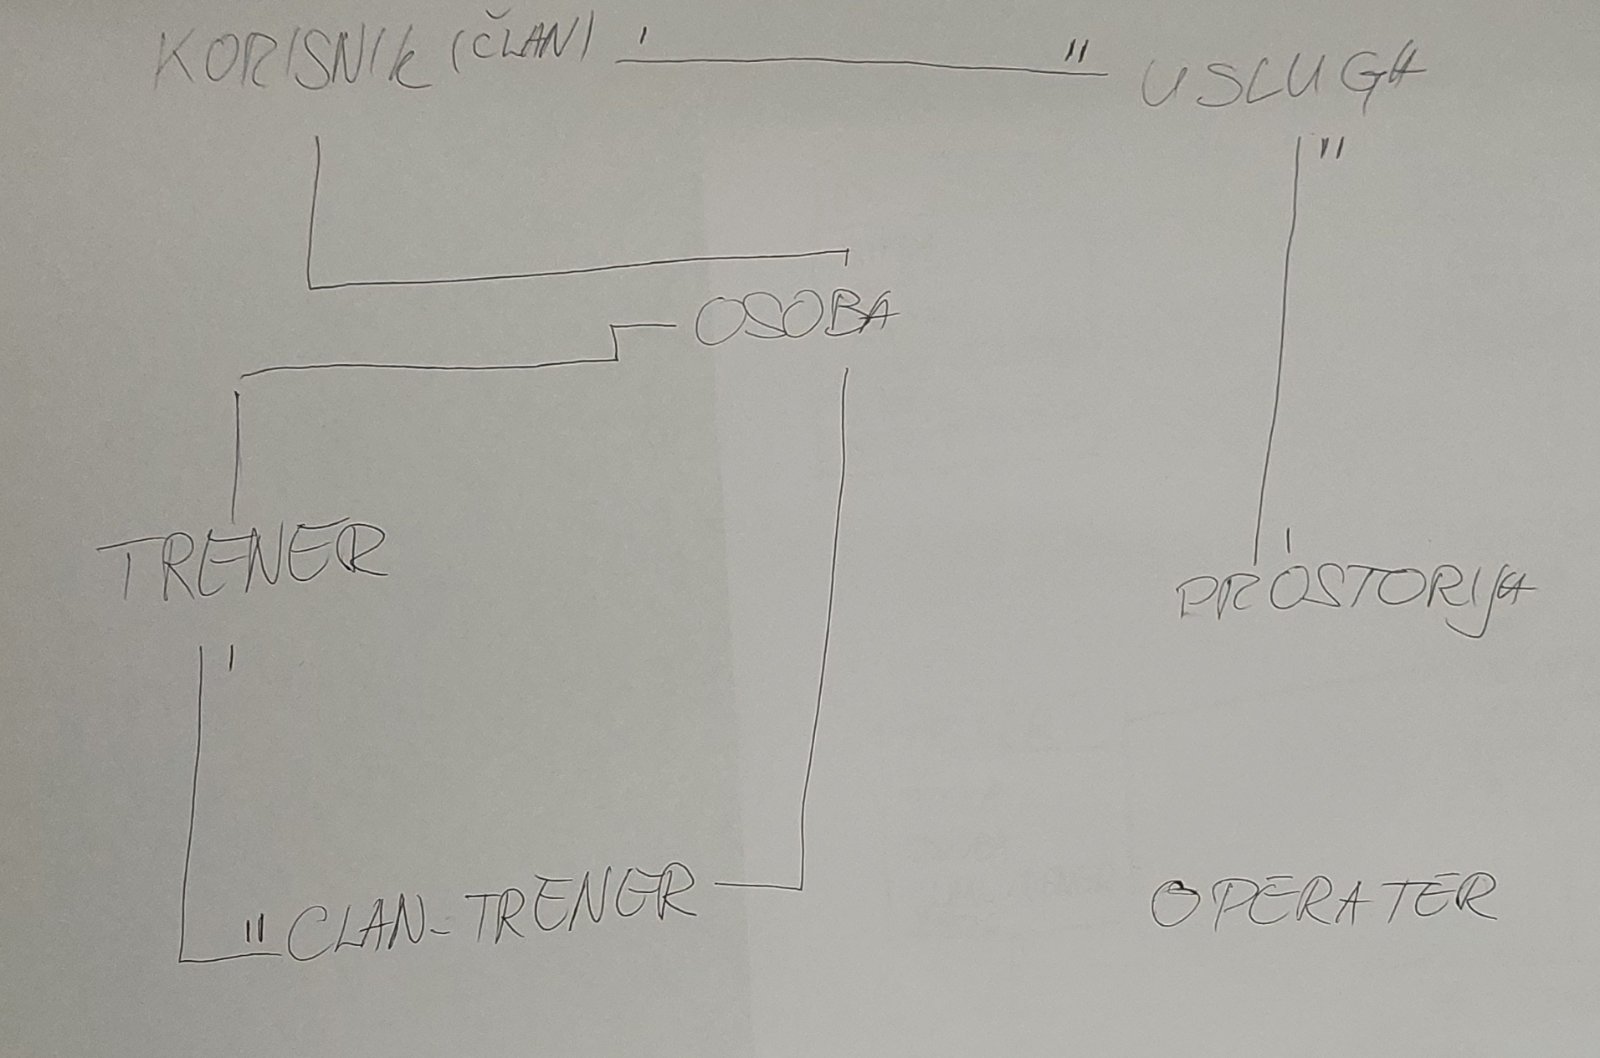 KORISNIK (ČLAN) ' " USLUGA
"
OSOBA
TRENER
'
PROSTORIJA
'
" CLAN-TRENER
OPERATER